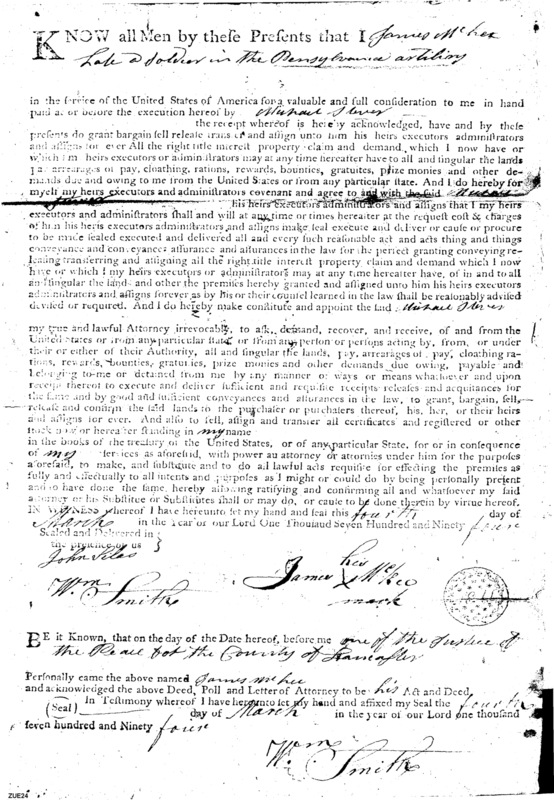 KNOW all Men by these Presents that I James McKee
Late a Soldier in the Pensylvania artiliry
in the service of the United States of America for a valuable and full consideration to me in hand
paid at or before the execution hereof by Michael Stever
the receipt whereof is hereby acknowledged, have and by these
presents do grant bargain sell release transfer and assign unto him his heirs executors administrators
and assigns for ever All the right title interest property claim and demand, which I now have or
which I my heirs executors or administrators may at any time hereafter have to all and singular the lands
pay arrearages of pay, cloathing, rations, rewards, bounties, gratuites, prize monies and other de-
mands due and owing to me from the United States or from any particular state. And I do hereby for
myself my heirs executors and administrators covenant and agree to and with the said Michael
his heirs executors administrators and assigns that I my heirs
executors and administrators shall and will at any time or times hereafter at the request cost & charges
of him his heris executors administrators and assigns make seal execute and deliver or cause or procure
to be made sealed executed and delivered all and every such reasonable act and acts thing and things
conveyance and conveyances assurance and assurances in the law for the perfect granting conveying re-
leasing transferring and assigning all the right title interest property claim and demand which I now
have or which I my heirs executors or administrators may at any time hereafter have, of in and to all
and singular the lands and other the premises hereby granted and assigned unto him his heirs executors
administrators and assigns forever as by his or their counsel learned in the law shall be reasonably advised
devised or required. And I do hereby make constitute and appoint the said Michael Stever
my true and lawful Attorney irrevocably, to ask, demand, recover, and receive, of and from the
United States or from any particular state, or from any person or persons acting by, from, or under
their or either of their Authority, all and singular the lands, pay, arrearages of pay, cloathing ra-
tions, rewards, bounties, gratuties, prize monies and other demands due owing, payable and
belonging to me or detained from me by any manner of ways or means whatsoever and upon
receipt thereof to execute and deliver sufficient and requisite receipts releases and acquitances for
the same and by good and sufficient conveyances and assurances in the law, to grant, bargain, sell,
release and confirm the said lands to the purchaser or purchasers thereof, his, her, or their heirs
and assigns for ever. And also to sell, assign and transfer all certificates and registered or other
stock now or hereafter standing in my name
in the books of the treasury of the United States, or of any particular State, for or in consequence
of my services as aforesaid, with power an attorney or attornies under him for the purposes
aforesaid, to make, and substitute and to do all lawful acts requisite for effecting the premises as
fully and effectually to all intents and purposes as I might or could do by being personally present
and to have done the same, hereby allowing ratifying and confirming all and whatsoever my said
attorney or his Substitue or Substitutes shall or may do, or cause to be done therein by virtue hereof.
IN WITNESS whereof I have hereunto set my hand and seal this fourth day of
March in the Year of our Lord One Thousand Seven Hundred and Ninety four
Sealed and Delivered in
the presence of us
John Stles
Wm Smith
James his X McKee
mark
BE it Known, that on the day of the Date hereof, before me one of the Justice of
the Peace for the County of Lancaster
Personally came the above named James McKee
and acknowledged the above Deed, Poll and Letter of Attorney to be his Act and Deed
In Testimony whereof I have hereunto set my hand and affixed my Seal the fourth
(Seal) day of March in the year of our Lord one thousand
seven hundred and Ninety four
Wm Smith
ZUE24